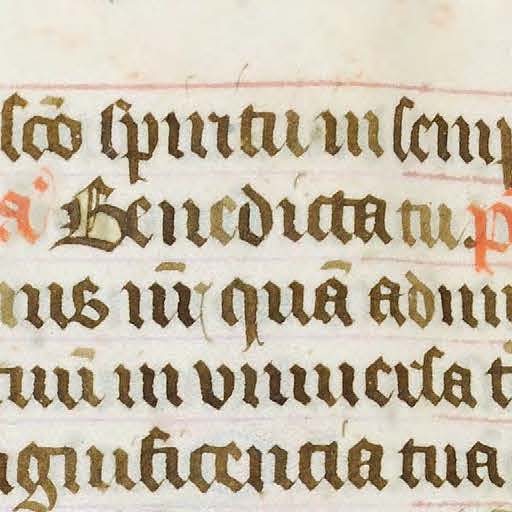 scō spiritu in semp
a Benedicta tu. p
nus nr̄ quā admi
tuū in vniuersa t
agnificentia tua